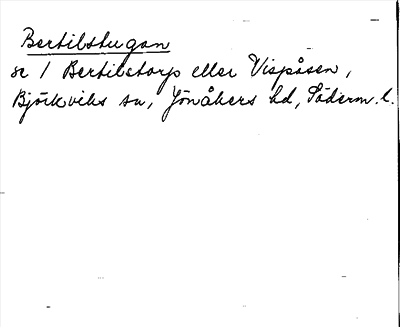 Bertilstugan
se / Bertilstorp eller Vispåsen,
Björkviks sn, Jönåkers hd, Söderm. l.